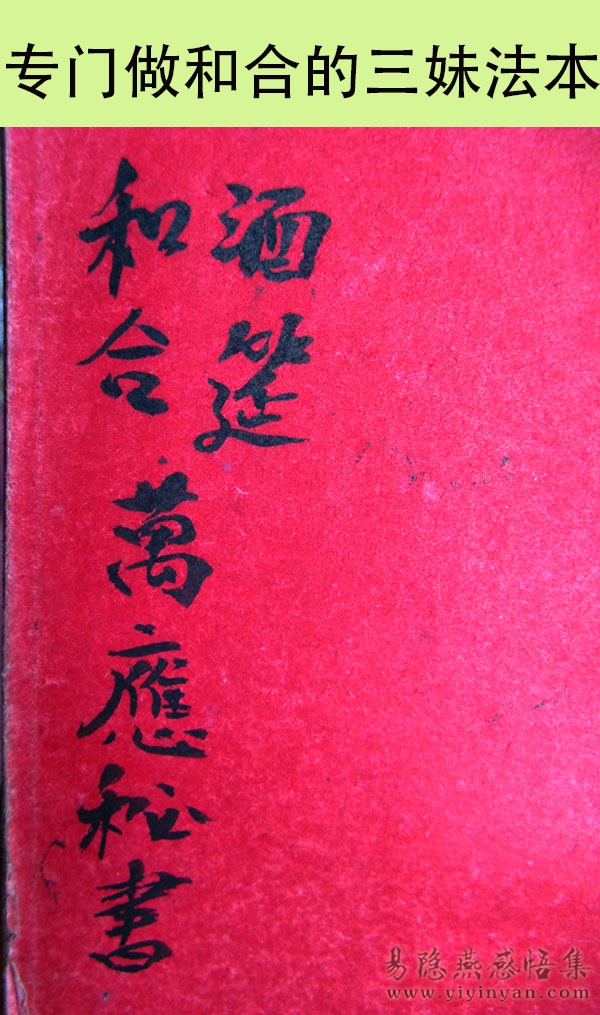 专门做和合的三妹法本
酒筵
和合萬應秘書
易隐燕感悟集
www.yiyinyan.com